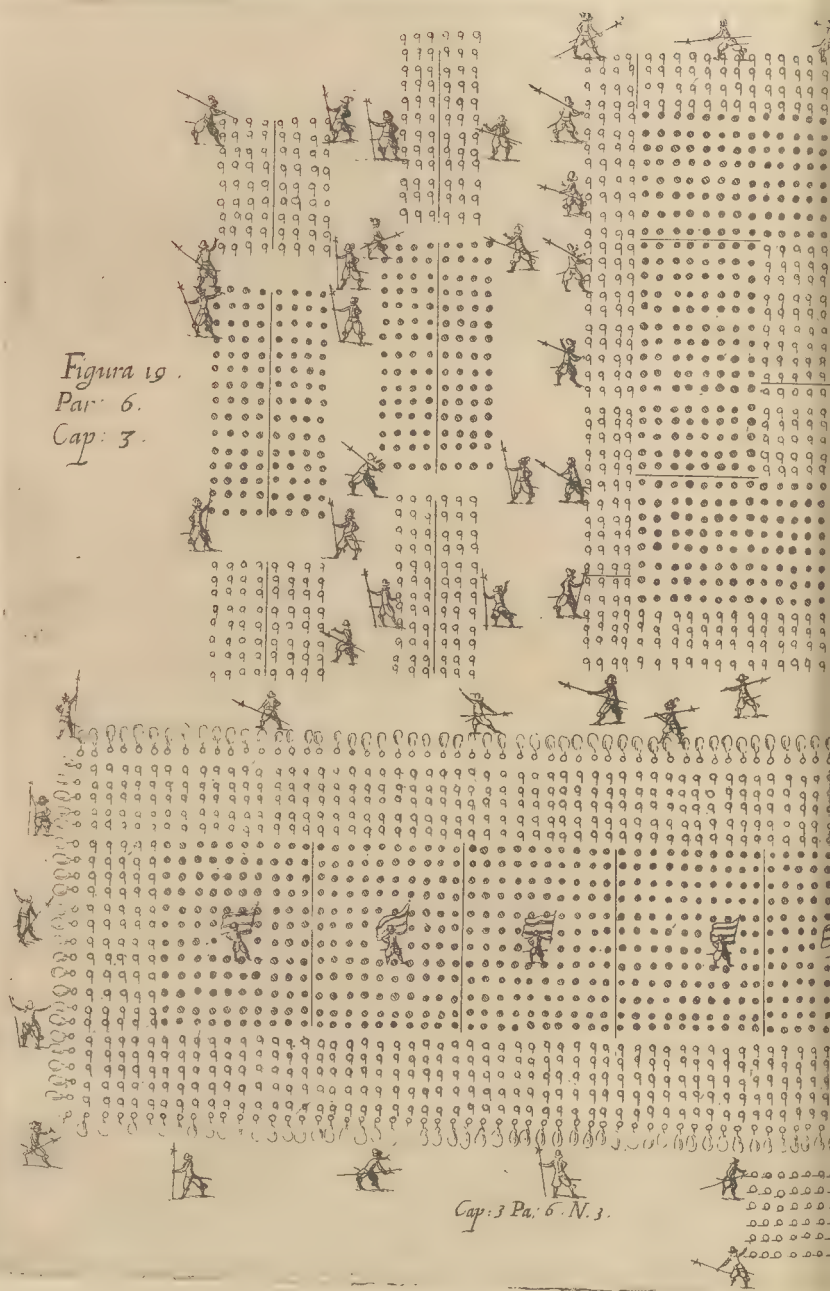 Figura 19.
Par: 6.
Cap: 3.
Cap: 3 Pa: 6. N. 3.